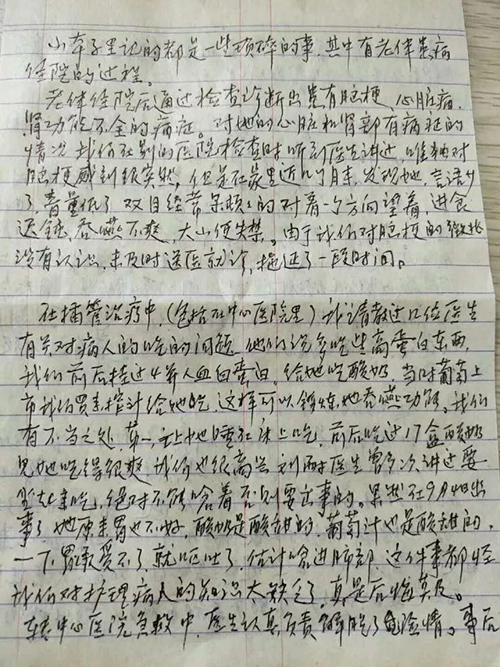 小本子里记的都是一些琐碎的事,其中有老伴患病
住院的过程。
老伴住院后通过检查诊断出患有脑梗、心脏病、
肾功能不全的病症。对她的心脏和肾部有病症的
情况,我们在别的医院检查时听到医生讲过,唯独对
脑梗感到很突然。但是在家里近几个月来,发现她,言语少
了,音量低了,双目经常呆板的对着一个方向望着,进食
迟钝,吞咽不爽,大小便失禁。由于我们对脑梗的
没有认识,未及时送医就诊,拖延了一段时间。
在插管治疗中,(包括在中心医院里)我请教过几位医生
有关对病人的吃的问题,他们说多吃些高蛋白东西,
我们前后挂过4算人血白蛋白,给她吃酸奶,当时葡萄上
市我们买来榨汁给她吃,这样可以锻炼她吞咽功能。我们
有不当之处,第一,让她睡在床上吃,前后吃过17盒酸奶
见她吃得很爽,我们也很高兴,刘医生曾多次讲过要
坐起来吃,绝对不能呛着,否则要出事的。果然在9月4日出
事了,她原来胃也不好,酸奶是酸甜的,葡萄汁也是酸甜的,
一下胃承受不了,就呕吐了,估计呛进肺部,这件事都怪
我们对护理病人的知识太缺乏了,真是后悔莫及。
转中心医院急救中,医生认真负责,解脱了危险情。事后